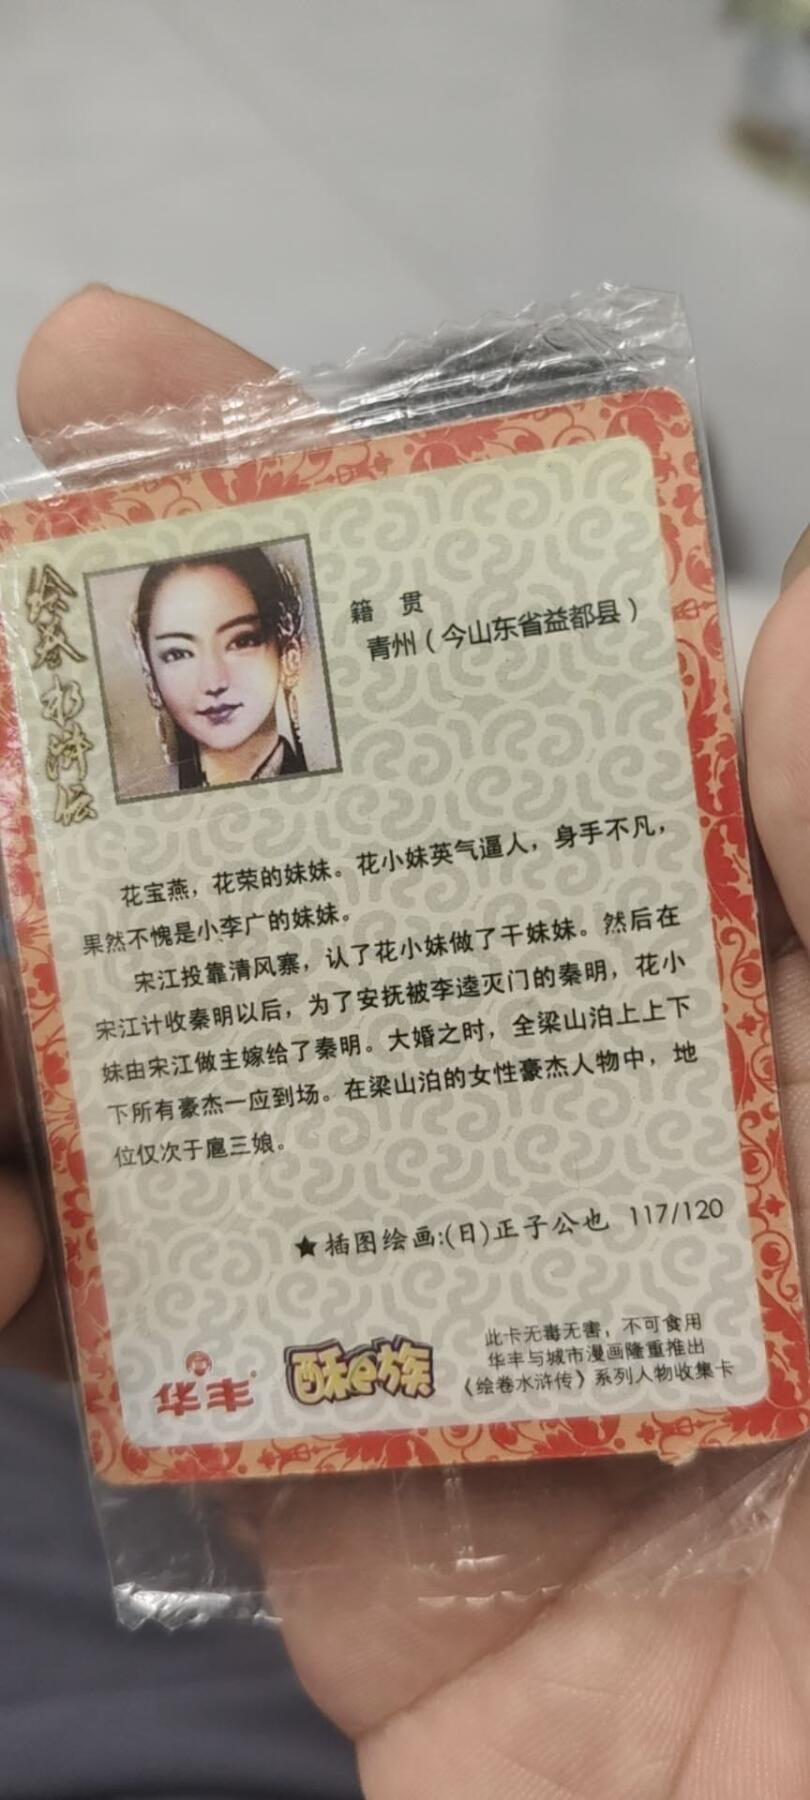 绘卷水浒传
籍 贯
青州（今山东省益都县）
花宝燕，花荣的妹妹。花小妹英气逼人，身手不凡，
果然不愧是小李广的妹妹。
宋江投靠清风寨，认了花小妹做了干妹妹。然后在
宋江计收秦明以后，为了安抚被李逵灭门的秦明，花小
妹由宋江做主嫁给了秦明。大婚之时，全梁山泊上上下
下所有豪杰一应到场。在梁山泊的女性豪杰人物中，地
位仅次于扈三娘。
★插图绘画:(日)正子公也 117/120
华丰
酥e族
此卡无毒无害，不可食用
华丰与城市漫画隆重推出
《绘卷水浒传》系列人物收集卡